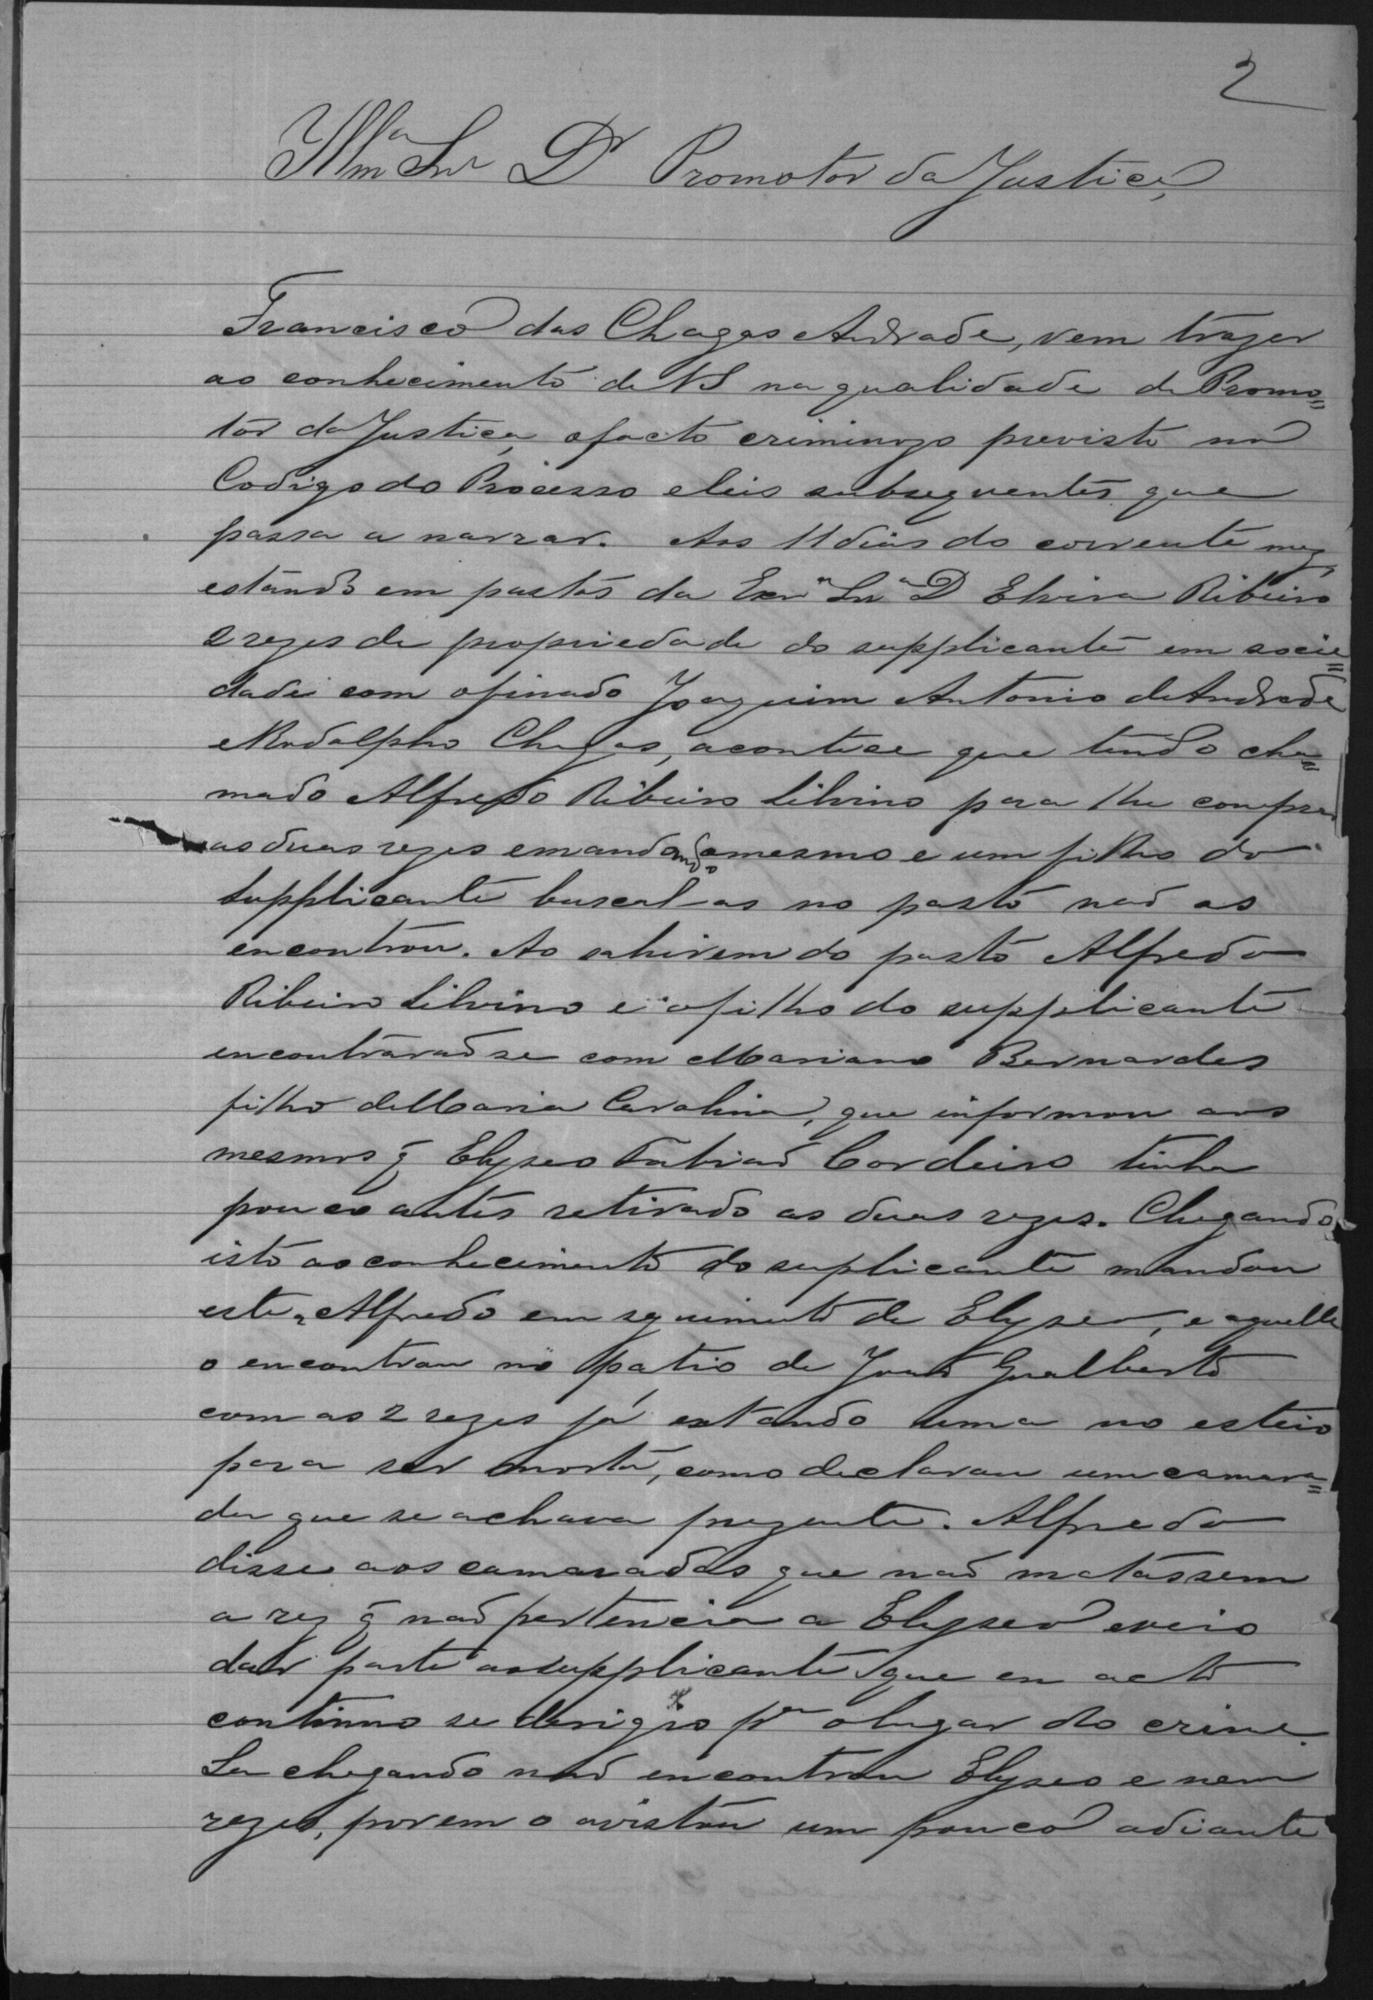 2
Illmo Snr Dr Promotor da Justiça,
Francisco das Chagas Andrade, vem trazer
ao conhecimento de VS na qualidade de Promo=
tor da Justiça, o facto criminozo previsto no
Codigo do Processo e leis subsequentes que
passa a narrar. Aos 11 dias do corrente mez,
estando em pastos da Exma Sra D Elvira Ribeiro
2 rezes de propriedade do supplicante em socie=
dade com o finado Joaquim Antonio de Andrade
e Rodolpho Chagas, acontece que tendo cha=
mado Alfredo Ribeiro Silvino para lhe comprar
as duas rezes e mandando o mesmo e um filho do
supplicante buscal as no pasto naõ as
encontrou. Ao sahirem do pasto Alfredo
Ribeiro Silvino e o filho do supplicante
encontraraõ se com Mariano Bernardes
filho de Maria Carolina, que informou aos
mesmos q̃ Elyseo Fabiaõ Cordeiro tinha
pouco antes retirado as duas rezes. Chegando
isto ao conhecimento do suplicante mandou
este, Alfredo em seguimento de Elyseo, e aquelle
o encontrou no patio de Joaõ Gualberto
com as 2 rezes já estando uma no esteio
para ser morta, como declarou um camara=
da que se achava prezente. Alfredo
disse aos camaradas que naõ matassem
a rez q̃ naõ pertencia a Elyseo e veio
dar parte ao supplicante que en acto
continuo se derigio pa o lugar do crime.
La chegando naõ encontrou Elyseo e nem
rezes, porem o avistou um pouco adiante